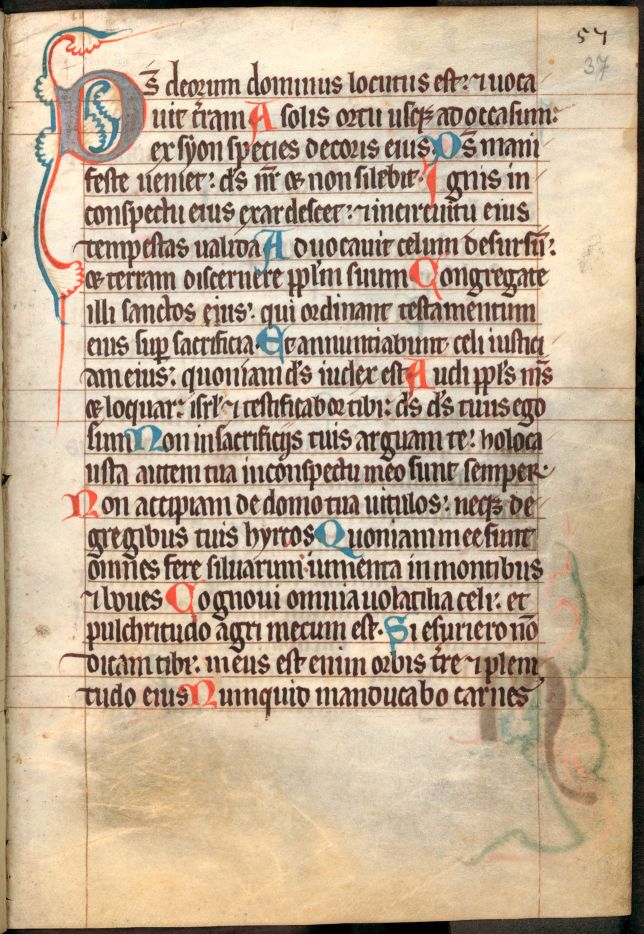 57
37
Ds̄ deorum dominus locutus est: ⁊ uoca
uit t̄ram A solis ortu usqꝫ ad occasum:
ex syon species decoris eius. Ds̄ mani
feste ueniet: ds̄ nr̄ & non silebit. Ignis in
conspectu eius exardescet: ⁊ in circuitu eius
tempestas ualida Aduocauit celum desursū:
& terram discernere ppl̄m suum Congregate
illi sanctos eius: qui ordinant testamentum
eius sup̄ sacrificia. Et annunciabunt celi iustici
am eius: quoniam ds̄ iudex est. Audi ppl̄s m̄s
& loquar: isrl̄ ⁊ testificabor tibi: ds̄ ds̄ tuus ego
sum Non in sacrificijs tuis arguam te: holoca
usta autem tua in conspectu meo sunt semper.
Non accipiam de domo tua uitulos: neqꝫ de
gregibus tuis hyrcos Quoniam mee sunt
omnes fere siluarum: iumenta in montibus
⁊ boues Cognoui omnia uolatilia celi: et
pulchritudo agri mecum est. Si esuriero nō
dicam tibi: meus est enim orbis t̄re ⁊ pleni
tudo eius Numquid manducabo carnes